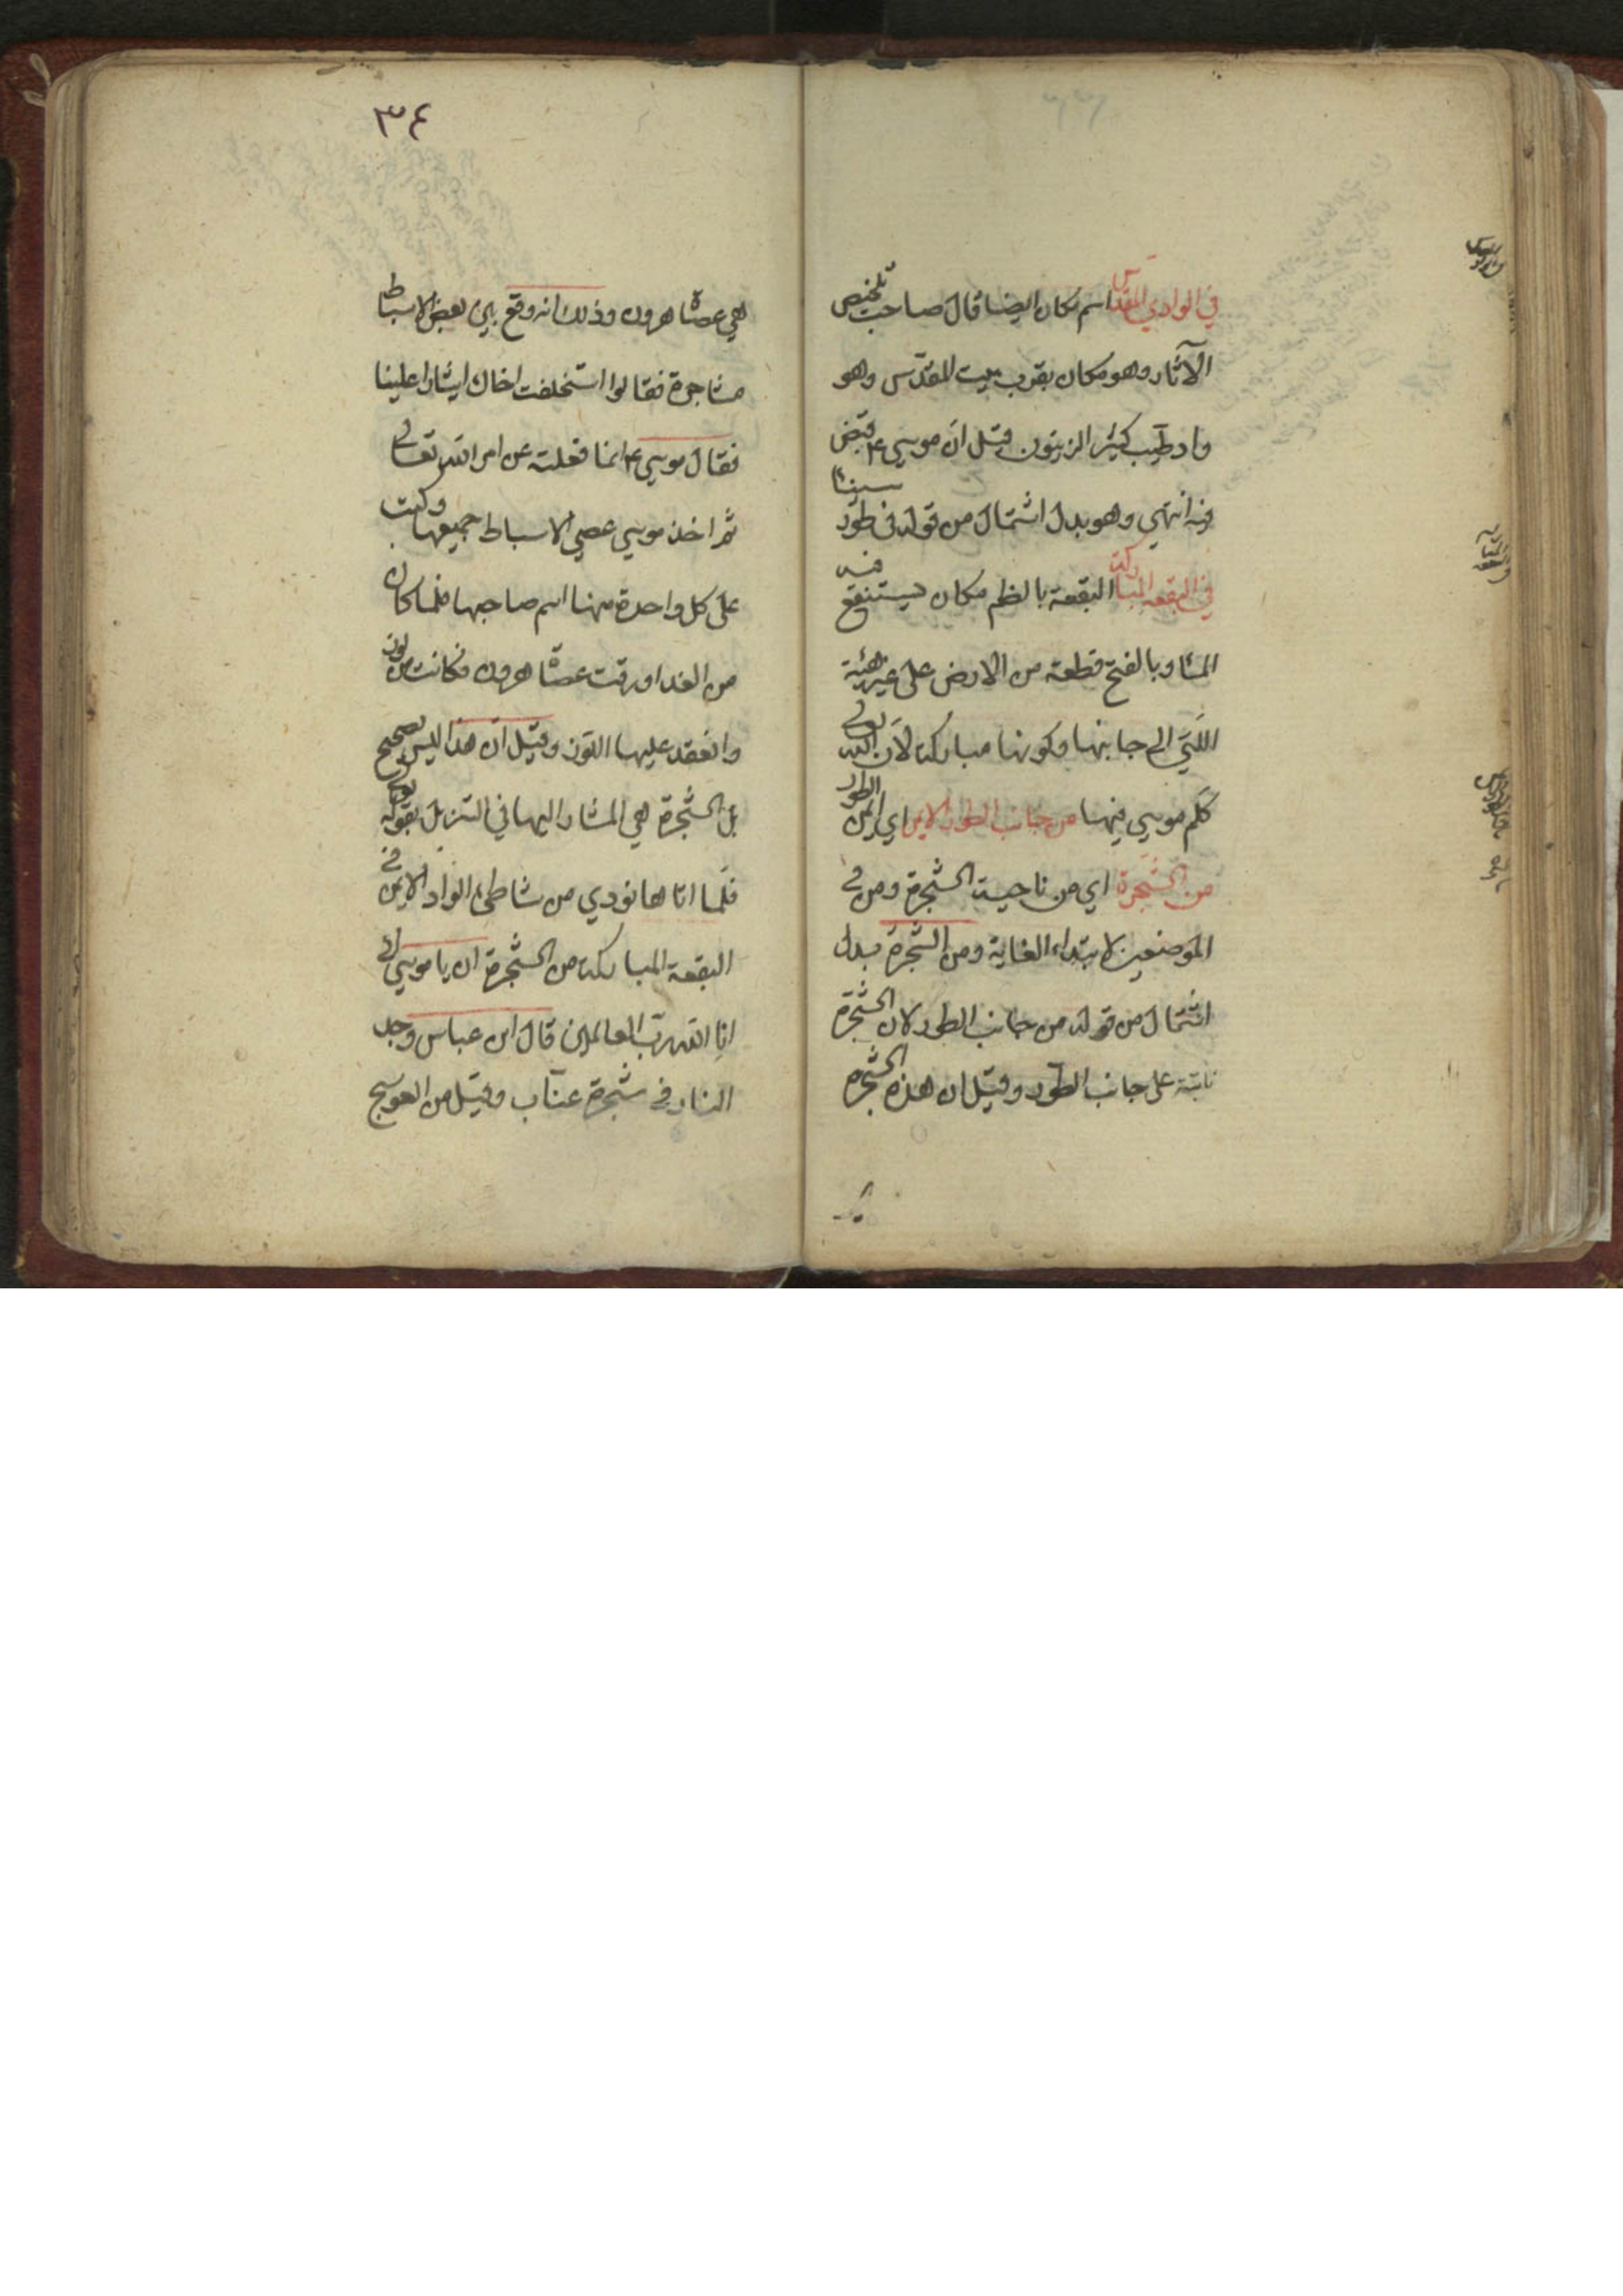 في الوادي المقدس اسم مكان ايضا قال صاحب تلخيص
الآثار وهو مكان بقرب بيت المقدس وهو
واد طيب كثير الزيتون قيل ان موسى ع قبض
فيه انتهى وهو بدل اشتمال من قوله في طور سينا
في البقعه المباركة البقعة بالظم مكان يستنقع فيه
الماء وبالفتح قطعة من الارض على غير هيئة
اللتي الى جانبها وكونها مباركة لان الله تعالى
كلم موسى فيها من جانب الطور الايمن اي ايمن الطور
من الشجرة اي من ناحية الشجرة ومن في
الموضعين لابتداء الغاية ومن الشجرة بدل
اشتمال من قوله من جانب الطور لان الشجرة
نابتة على جانب الطور وقيل ان هذه الشجرة
٣٤
هي عصا هرون وذلك انه وقع بين بعض الاسباط
مشاجرة فقالوا استخلفت اخاك ايثارا علينا
فقال موسى ع انما فعلته عن امر الله تعالى
ثم اخذ موسى عصي الاسباط جميعها وكتب
على كل واحدة منها اسم صاحبها فلما كان
من الغد اورقت عصا هرون فكانت من لوز
وانعقد عليها اللوز وقيل ان هذا ليس بصحيح
بل الشجرة هي المشار اليها في التنزيل بقوله تعالى
فلما اتاها نودي من شاطئ الواد الايمن في
البقعة المباركة من الشجرة ان يا موسى اني
انا الله رب العالمين قال ابن عباس وجد
النار في شجرة عناب وقيل من العوسج